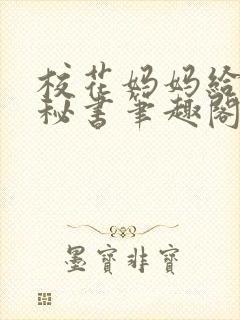 校花妈妈给
秘书笔趣阁
墨寶非寶